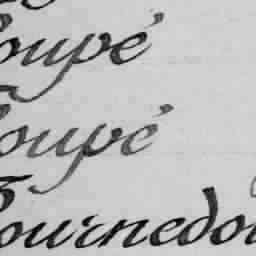 Coupé
Coupé
Tournedo